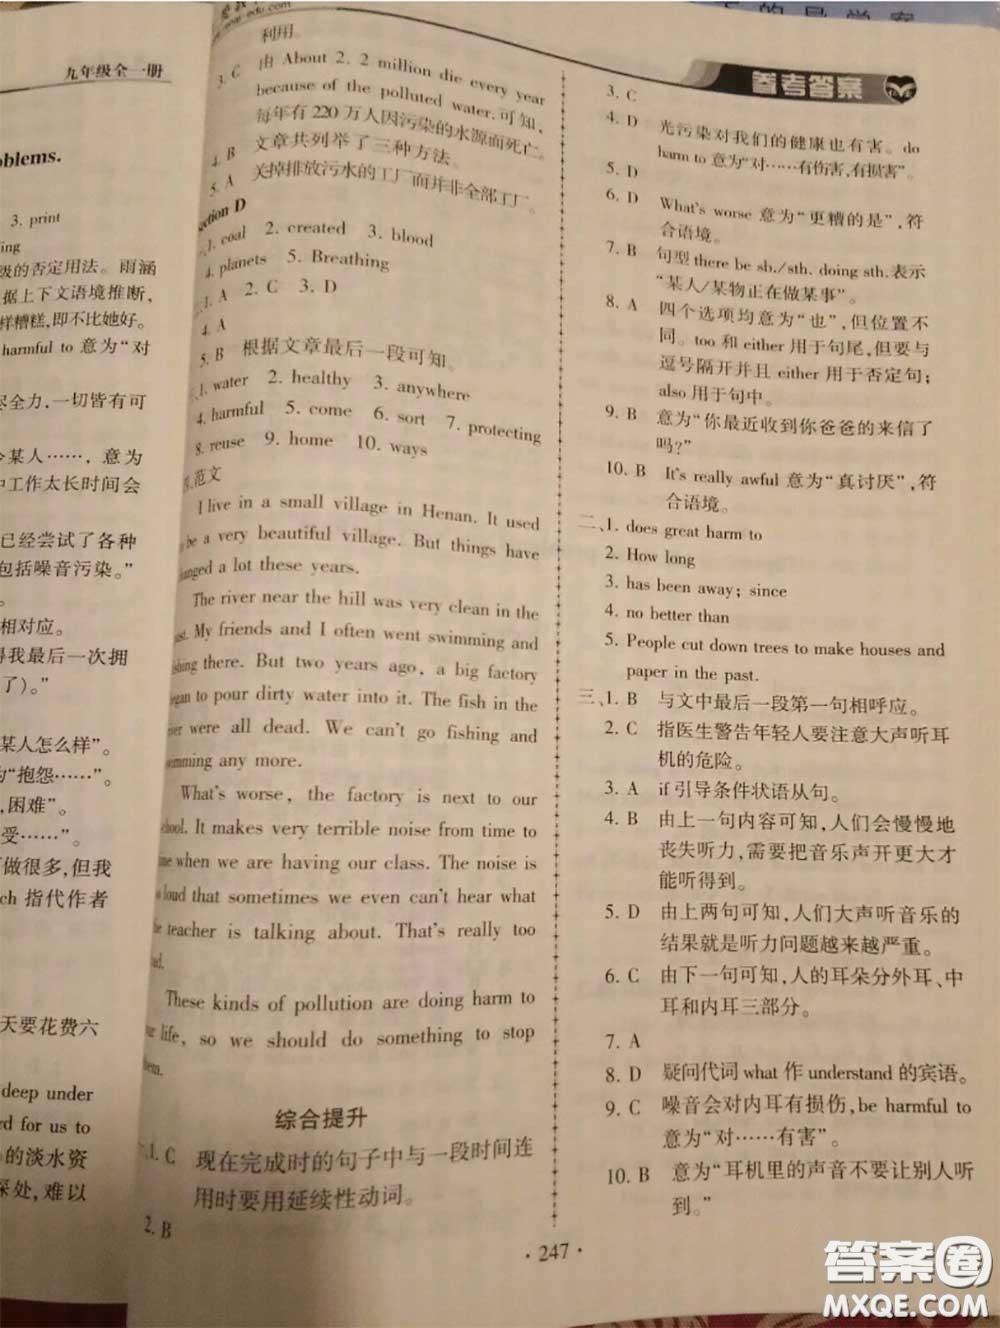 九年级全一册
oblems.
3. print
ing
级的否定用法。雨涵
据上下文语境推断,
样糟糕,即不比她好。
harmful to 意为“对
尽全力,一切皆有可
令某人……,意为
中工作太长时间会
已经尝试了各种
包括噪音污染。”
相对应。
得我最后一次拥
了)。”
某人怎么样”。
为“抱怨……”。
,困难”。
受……”。
做很多,但我
ch 指代作者
天要花费六
deep under
rd for us to
的淡水资
深处,难以
利用。
3. C 由 About 2. 2 million die every year
because of the polluted water. 可知,
每年有 220 万人因污染的水源而死亡。
4. B 文章共列举了三种方法。
5. A 关掉排放污水的工厂而并非全部工厂。
ection D
1. coal 2. created 3. blood
4. planets 5. Breathing
1. A 2. C 3. D
4. A
5. B 根据文章最后一段可知。
1. water 2. healthy 3. anywhere
4. harmful 5. come 6. sort 7. protecting
8. reuse 9. home 10. ways
范文
I live in a small village in Henan. It used
be a very beautiful village. But things have
anged a lot these years.
The river near the hill was very clean in the
ast. My friends and I often went swimming and
shing there. But two years ago, a big factory
egan to pour dirty water into it. The fish in the
iver were all dead. We can't go fishing and
imming any more.
What's worse, the factory is next to our
chool. It makes very terrible noise from time to
me when we are having our class. The noise is
loud that sometimes we even can't hear what
e teacher is talking about. That's really too
ad.
These kinds of pollution are doing harm to
ur life, so we should do something to stop
hem.
综合提升
一、1. C 现在完成时的句子中与一段时间连
用时要用延续性动词。
2. B
参考答案
3. C
4. D 光污染对我们的健康也有害。do
harm to 意为“对……有伤害,有损害”。
5. D
6. D What's worse 意为“更糟的是”,符
合语境。
7. B 句型 there be sb./sth. doing sth. 表示
“某人/某物正在做某事”。
8. A 四个选项均意为“也”,但位置不
同。too 和 either 用于句尾,但要与
逗号隔开并且 either 用于否定句;
also 用于句中。
9. B 意为“你最近收到你爸爸的来信了
吗?”
10. B It's really awful 意为“真讨厌”,符
合语境。
二、1. does great harm to
2. How long
3. has been away; since
4. no better than
5. People cut down trees to make houses and
paper in the past.
三、1. B 与文中最后一段第一句相呼应。
2. C 指医生警告年轻人要注意大声听耳
机的危险。
3. A if 引导条件状语从句。
4. B 由上一句内容可知,人们会慢慢地
丧失听力,需要把音乐声开更大才
能听得到。
5. D 由上两句可知,人们大声听音乐的
结果就是听力问题越来越严重。
6. C 由下一句可知,人的耳朵分外耳、中
耳和内耳三部分。
7. A
8. D 疑问代词 what 作 understand 的宾语。
9. C 噪音会对内耳有损伤,be harmful to
意为“对……有害”。
10. B 意为“耳机里的声音不要让别人听
到。”
· 247 ·
答案圈
MXQE.COM